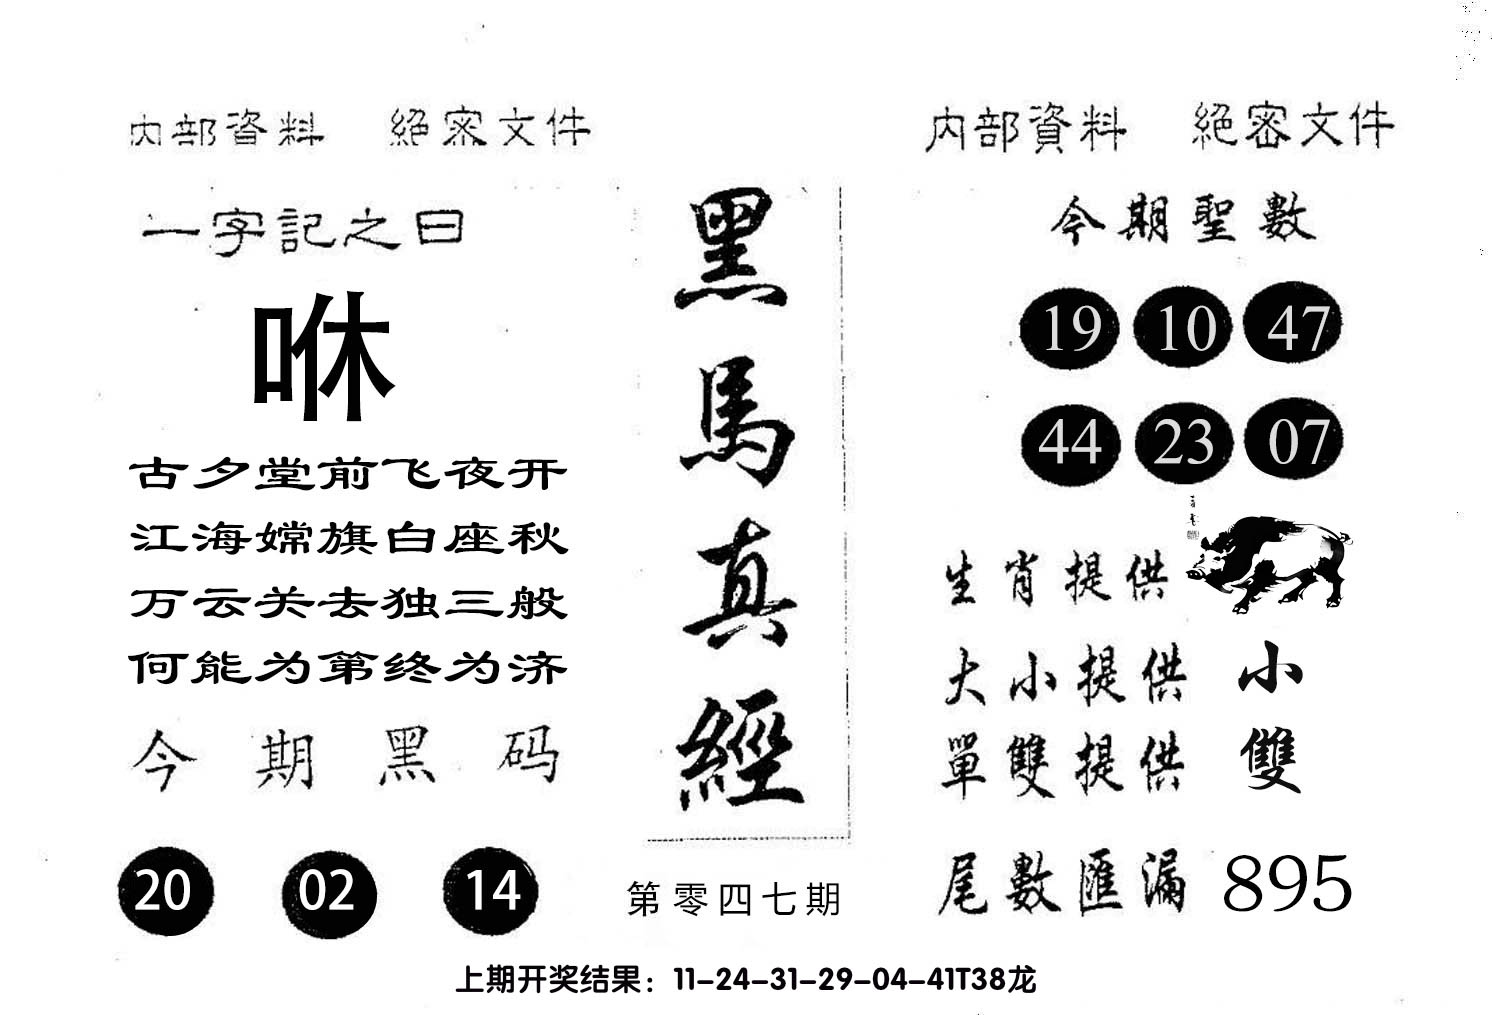 内部資料 絕密文件
一字記之曰
咻
古夕堂前飞夜开
江海嫦旗白座秋
万云关去独三般
何能为第终为济
今期黑码
20 02 14
黑馬真經
第零四七期
内部資料 絕密文件
今期聖數
19 10 47
44 23 07
生肖提供
大小提供 小
單雙提供 雙
尾數匯漏 895
上期开奖结果：11-24-31-29-04-41T38龙